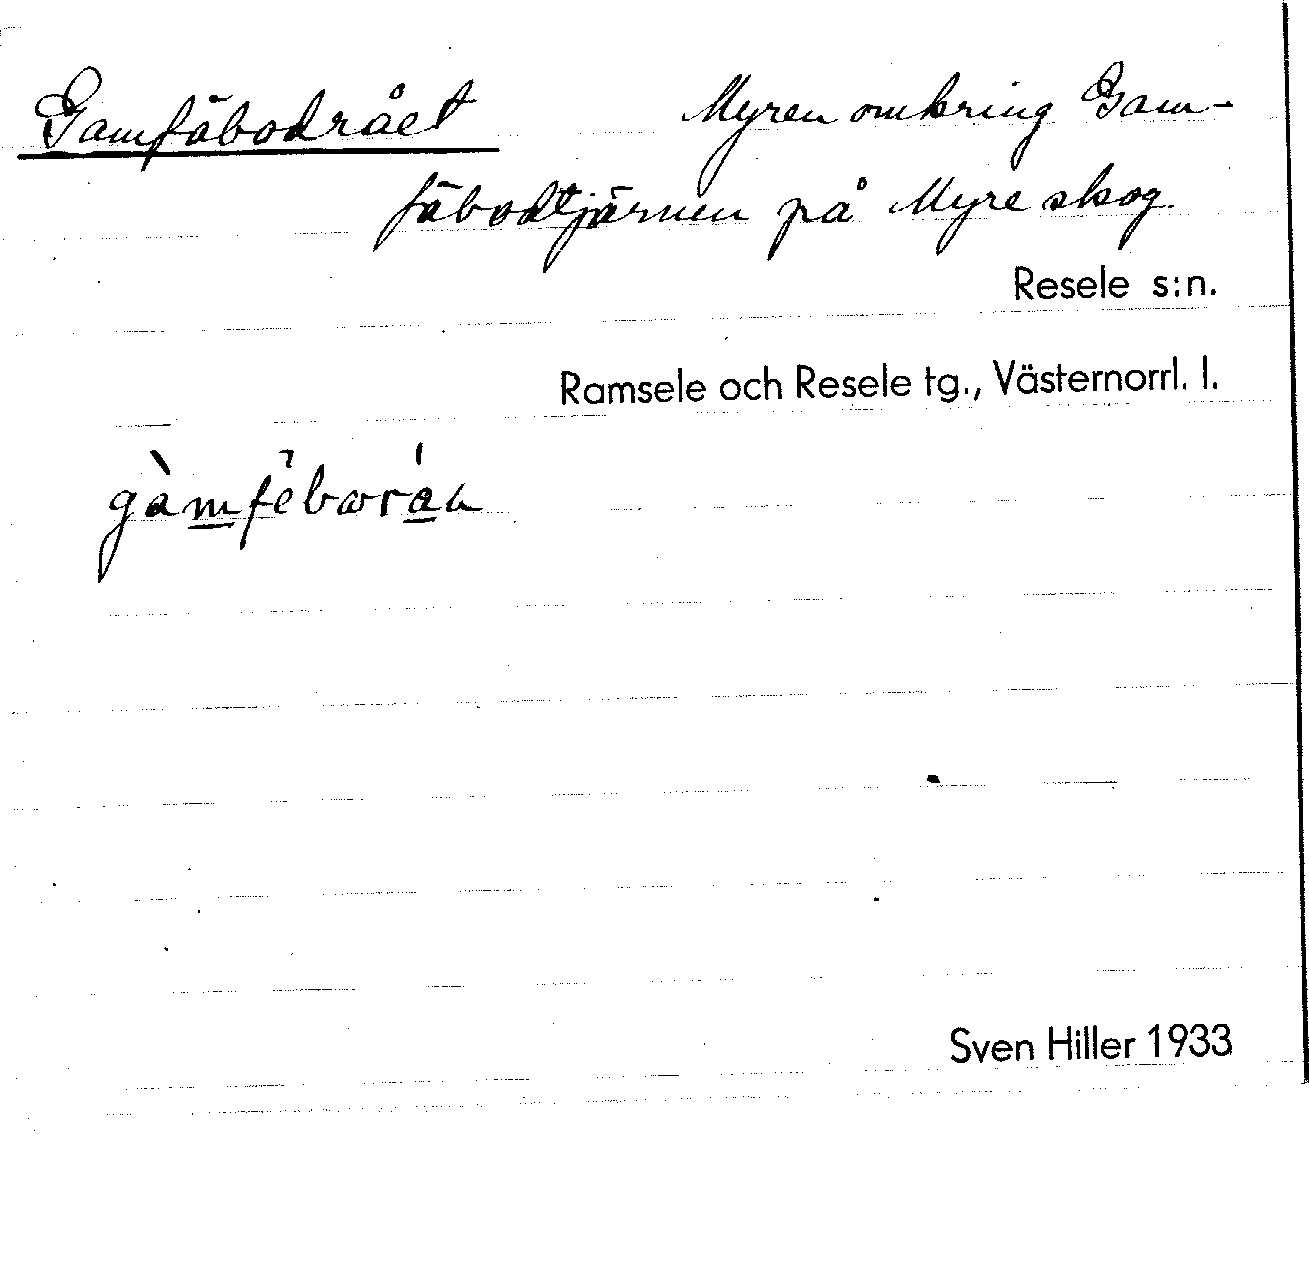 Gamfäbodrået Myren omkring Gam-
fäbodtjärnen på Myre skog.
Resele s:n.
Ramsele och Resele tg., Västernorrl. l.
Sven Hiller 1933